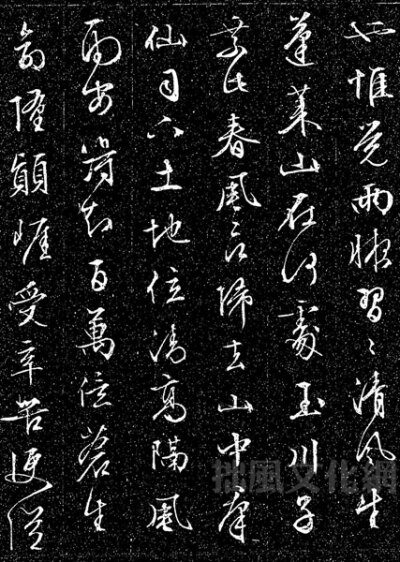 也惟覺兩腋習〻清風生
蓬萊山在何處玉川子
乘此春風欲歸去山中群
仙司下土地位清高隔風
雨安得知百萬億蒼生
命墮顛崖受辛苦便從
拙風文化網